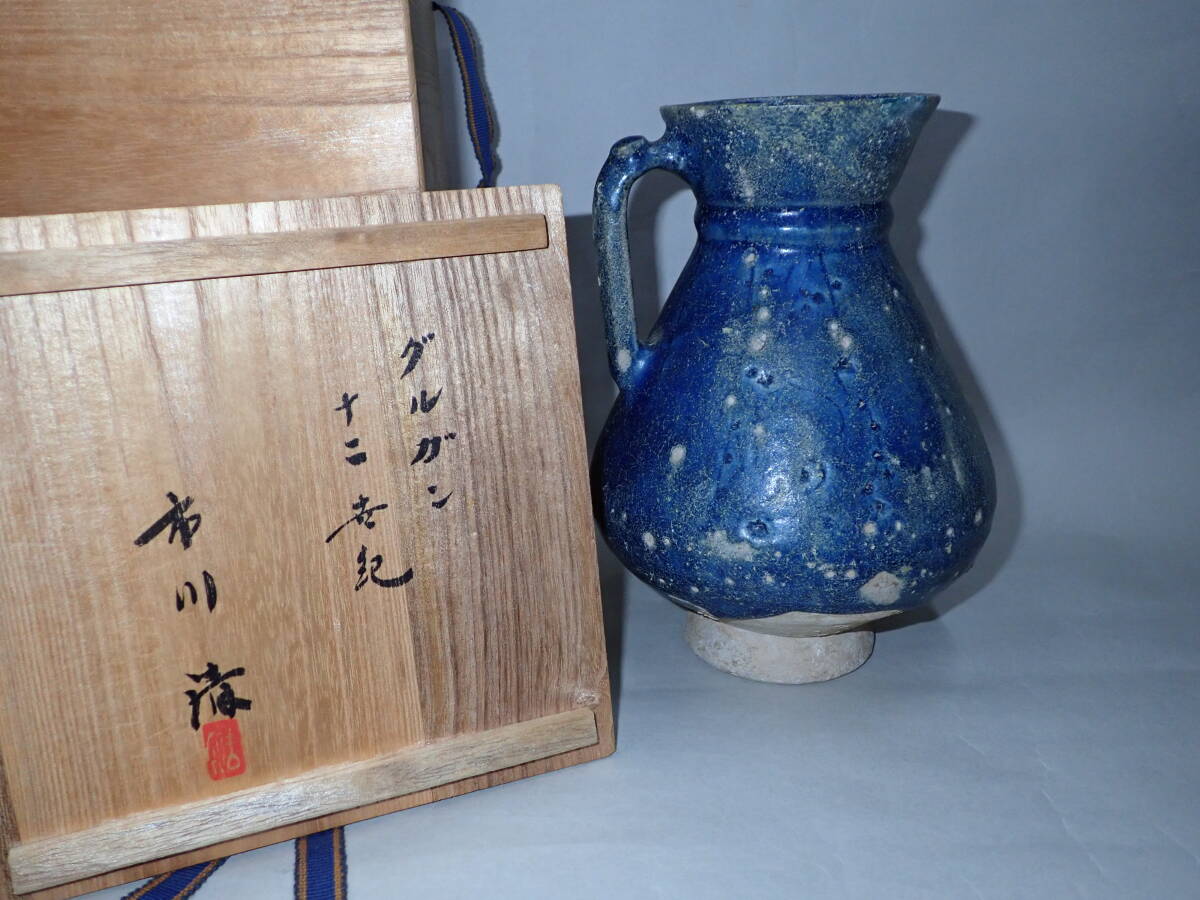 グルガン
十二世紀
市川 清